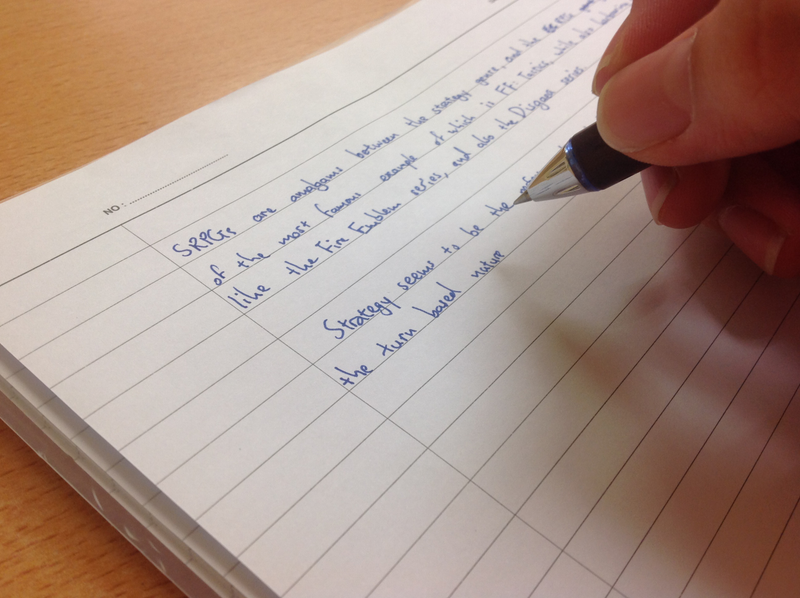 NO :
SRPGs are amalgams between the strategy genre, and the
of the most famous example of which is FF: Tactics, while also
like the Fire Emblem series, and also the Disgaea series
Strategy seems to be the
the turn based nature